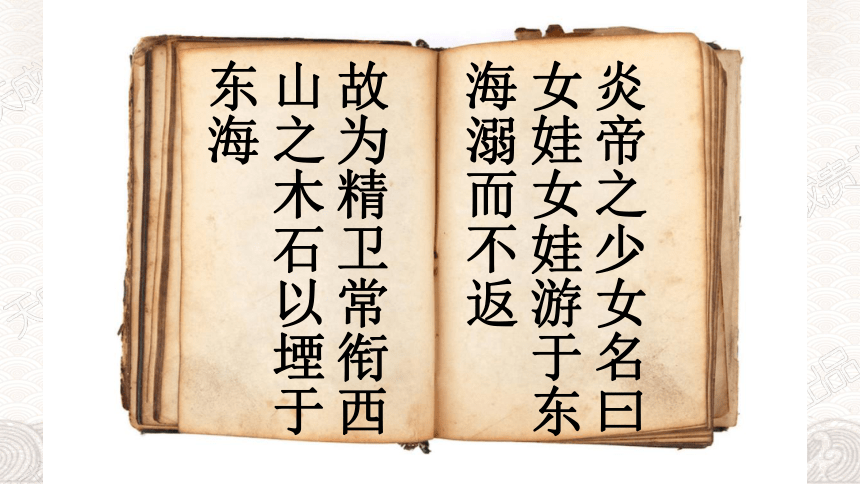 炎帝之少女名曰
女娃女娃游于东
海溺而不返
故为精卫常衔西
山之木石以堙于
东海